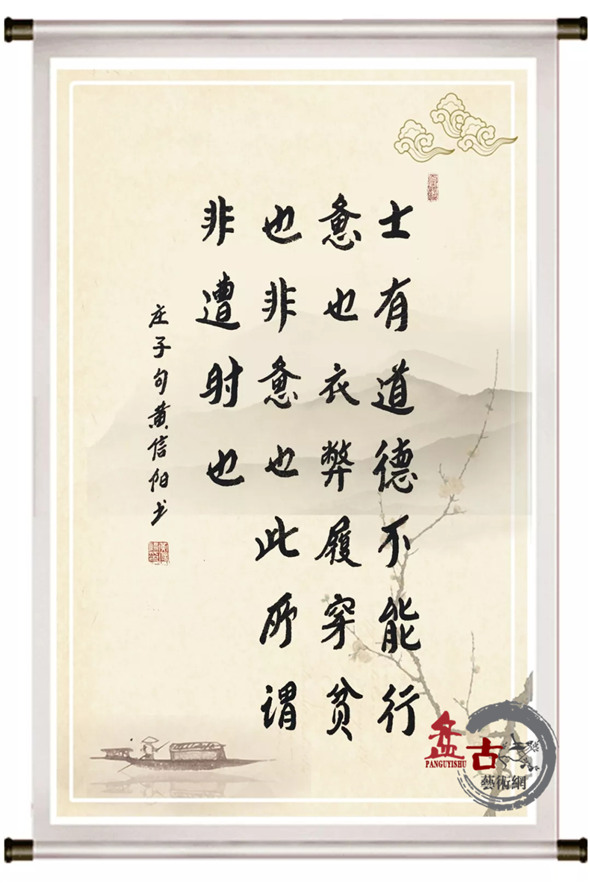 士有道德不能行
惫也衣弊履穿贫
也非惫也此所谓
非遭时也
庄子句黄信阳书
盘古
PANGUYISHU
藝術網